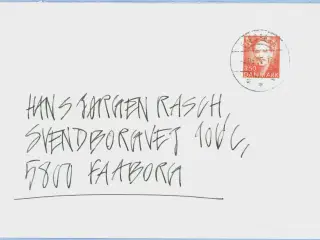 DANMARK
HANS JØRGEN RASCH,
SVENDBORGVEJ 100 C,
5800 FAABORG